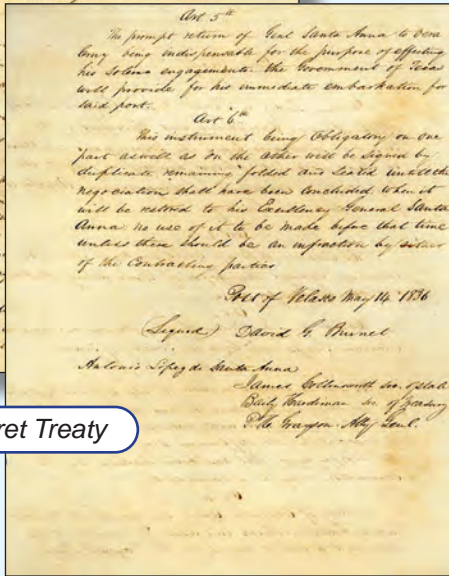 Art 5th
The prompt return of Genl Santa Anna to Vera
Cruz being indispensable for the purpose of effecting
his solemn engagements the Government of Texas
will provide for his immediate embarkation for
said port.
Art 6th
This instrument being Obligatory on one
part as well as on the other will be signed by
duplicate remaining folded and sealed until the
negociation shall have been concluded when it
will be restored to his Excellency General Santa
Anna no use of it to be made before that time
unless there should be an infraction by either
of the Contracting parties
Port of Velasco May 14 1836
(Signed) David G. Burnet
Antonio Lopez de Santa Anna
James Collinsworth Sec. of State
Baily Hardiman Sec of Treasury
P. W. Grayson Atty Genl.
ret Treaty